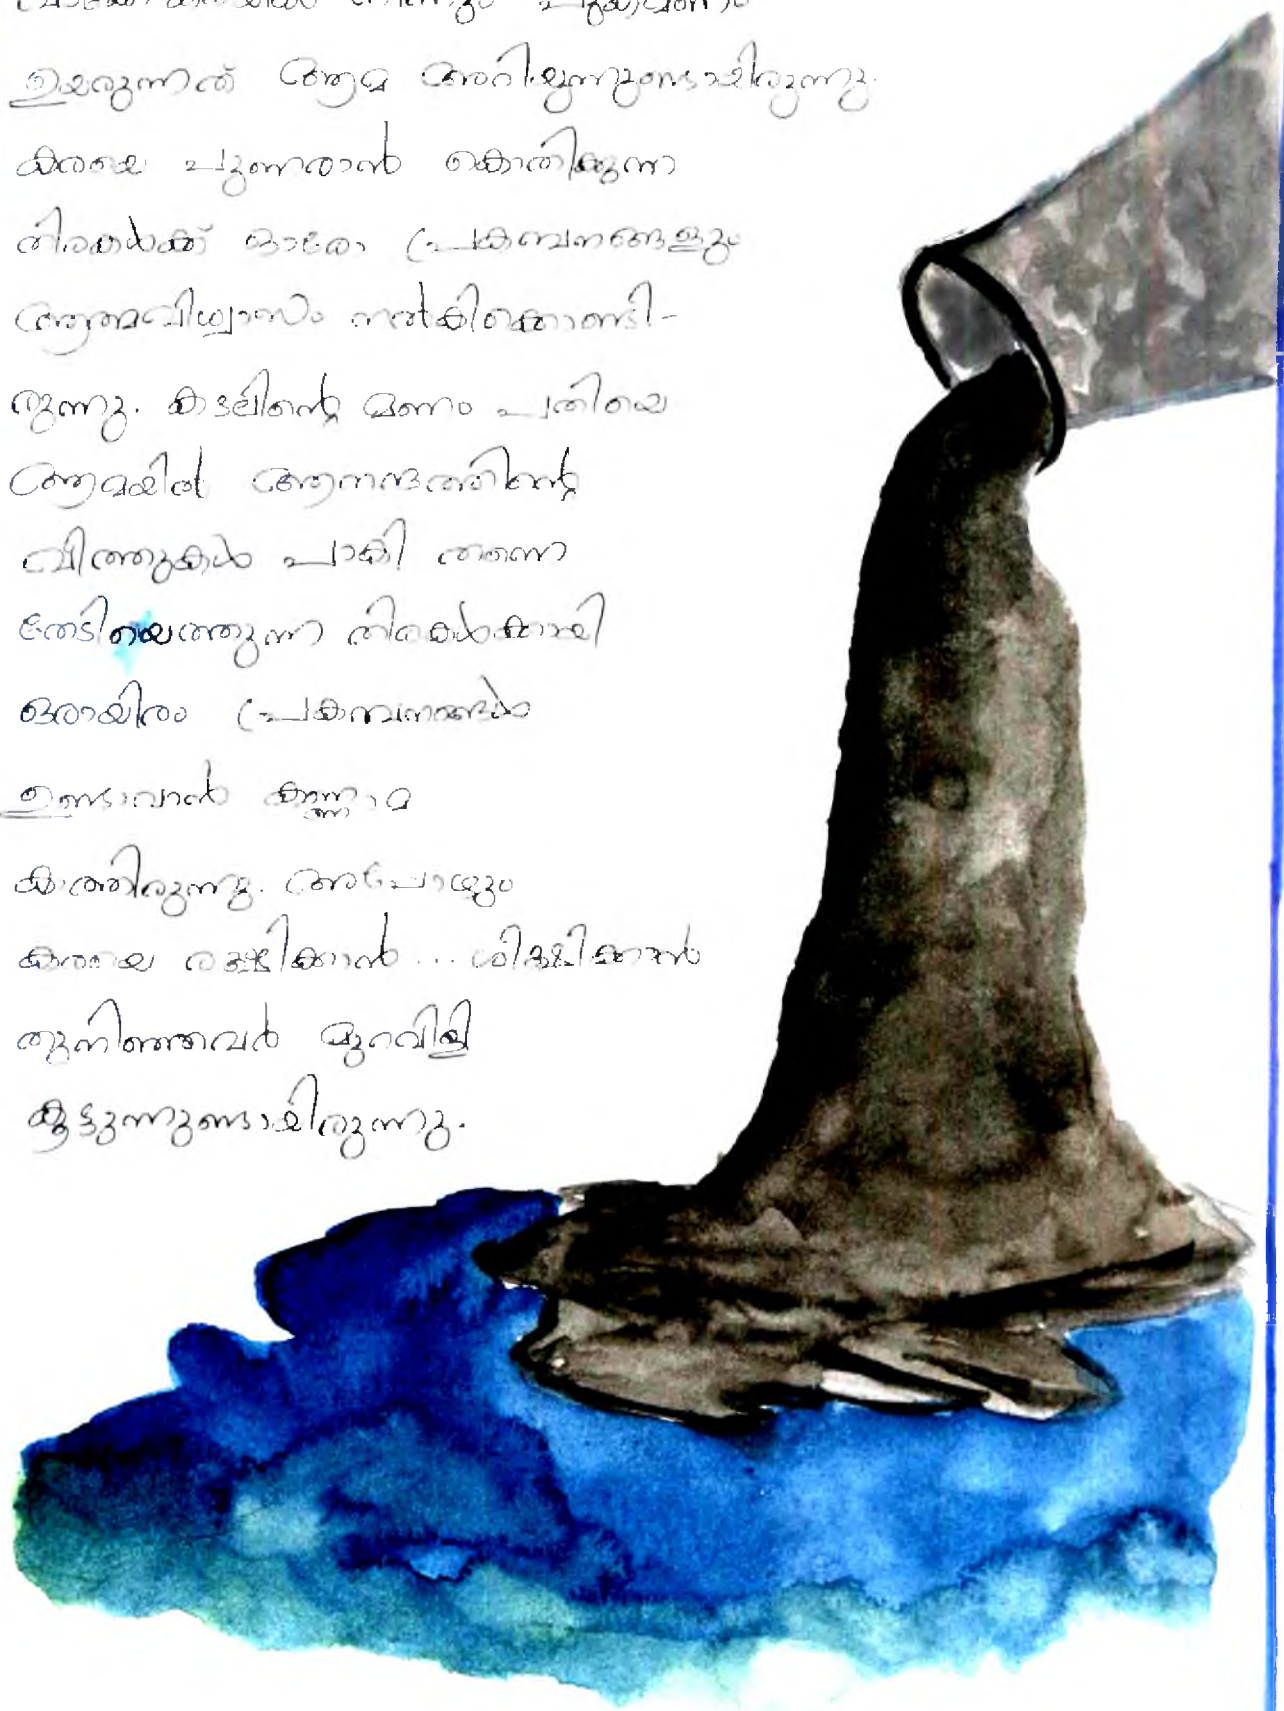 നിന്നും
ഉയരുന്നത് ആമ അറിയുന്നുണ്ടായിരുന്നു.
കരയെ പുണരാൻ കൊതിക്കുന്ന
തിരകൾക്ക് ഓരോ പ്രകമ്പനങ്ങളും
ആത്മവിശ്വാസം നൽകിക്കൊണ്ടി-
രുന്നു. കടലിന്റെ മണം പതിയെ
ആമയിൽ ആനന്ദത്തിന്റെ
വിത്തുകൾ പാകി തന്നെ
തേടിയെത്തുന്ന തിരകൾക്കായി
ഒരായിരം പ്രകമ്പനങ്ങൾ
ഉണ്ടാവാൻ കണ്ണാമ
കാത്തിരുന്നു. അപ്പോഴും
കരയെ രക്ഷിക്കാൻ ... ശിക്ഷിക്കാൻ
തുനിഞ്ഞവർ മുറവിളി
കൂട്ടുന്നുണ്ടായിരുന്നു.